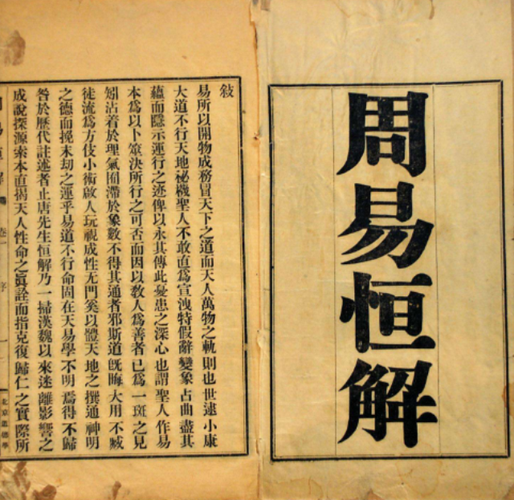 周易恒解
敍
易所以開物成務冒天下之道而天人萬物之軌則也世逮小康
大道不行天地祕機聖人不敢直為宣洩特假辭變象占曲盡其
蘊而隱示運行之迹俾以永其傳此憂患之深心也謂聖人作易
本為以卜筮決所行之可否而因以教人為善者已為一斑之見
矧沾着於理氣囿滯於象數不得其通者邪斯道旣晦大用不臧
徒流為方伎小術啟人玩視成性无門奚以體天地之撰通神明
之德而挽末劫之運乎易道不行命固在天易學不明焉得不歸
咎於歷代註述者止唐先生恒解乃一掃漢魏以來迷離影響之
成說探源索本直揭天人性命之眞詮而指克復歸仁之實際所
周易恒解 卷一 序
北京道德學